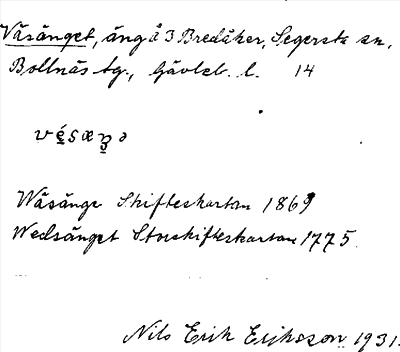 Väsänget, äng å 3 Bredåker, Segersta sn,
Bollnäs tg., Gävleb. l. 14
Wäsänge Skifteskartan 1869
Wedsänget Storskifteskartan 1775.
Nils Erik Eriksson 1931.